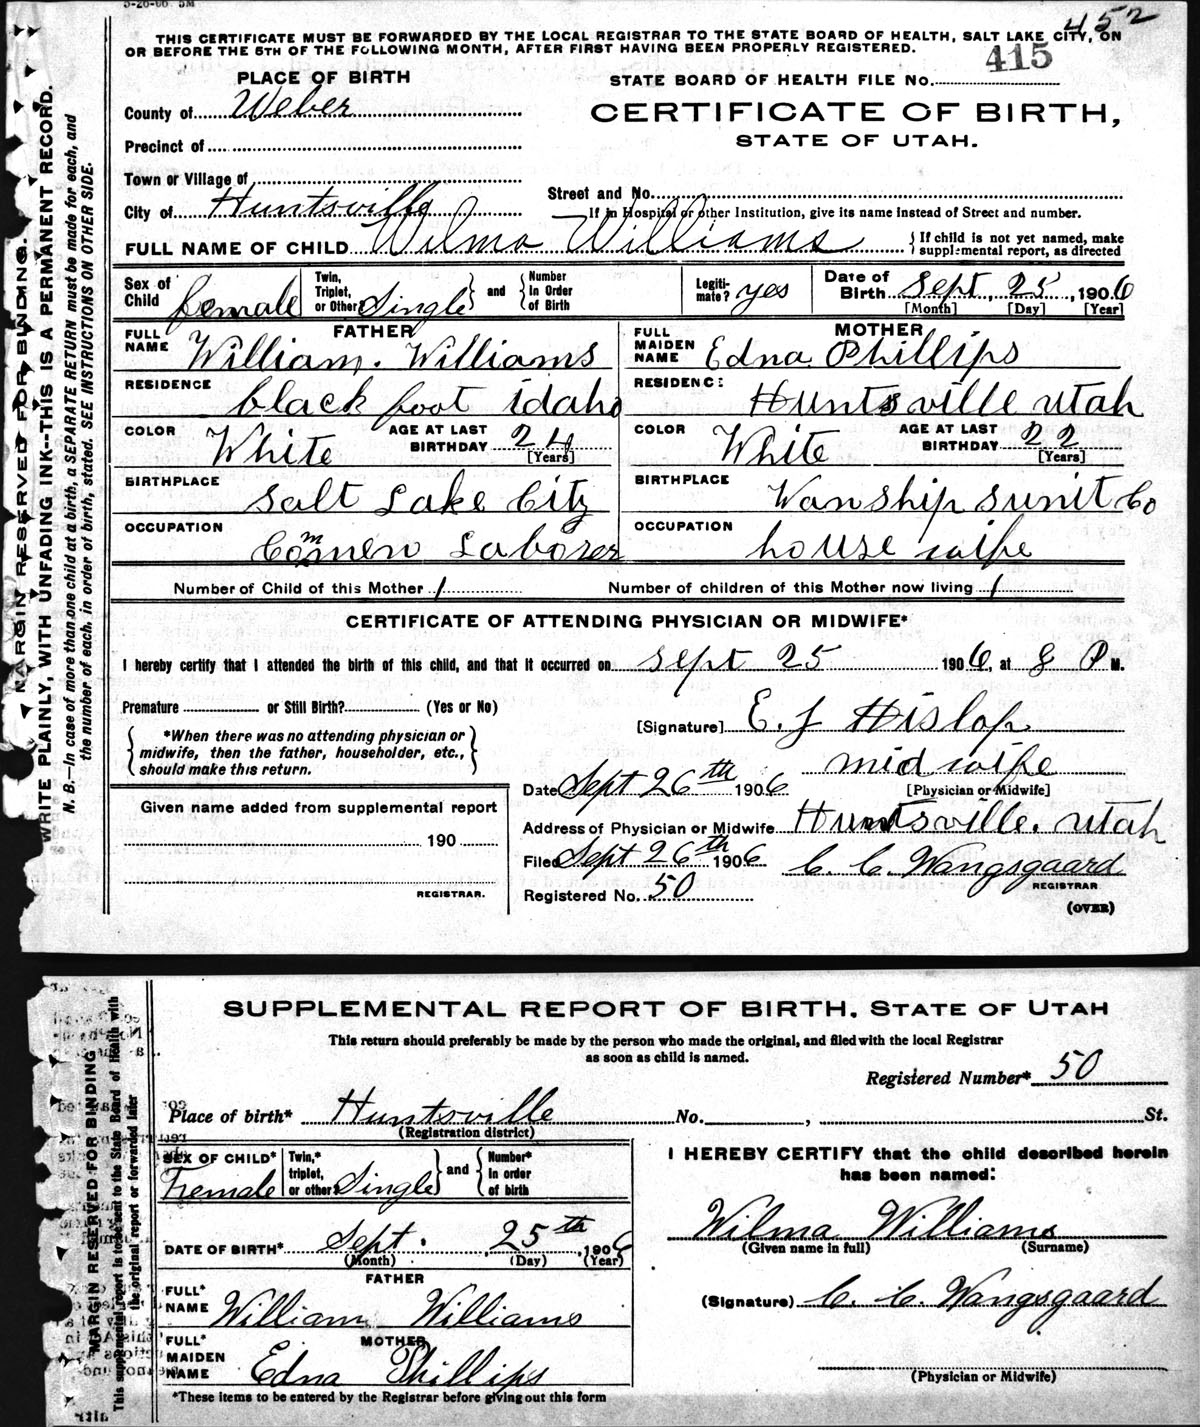 5-26-06 5M
452
THIS CERTIFICATE MUST BE FORWARDED BY THE LOCAL REGISTRAR TO THE STATE BOARD OF HEALTH, SALT LAKE CITY, ON
OR BEFORE THE 5TH OF THE FOLLOWING MONTH, AFTER FIRST HAVING BEEN PROPERLY REGISTERED.
415
PLACE OF BIRTH
STATE BOARD OF HEALTH FILE No.
County of Weber
CERTIFICATE OF BIRTH,
STATE OF UTAH.
Precinct of
Town or Village of
Street and No.
City of Huntsville
If in Hospital or other Institution, give its name instead of Street and number.
FULL NAME OF CHILD Wilma Williams
{If child is not yet named, make
supplemental report, as directed
Sex of Child female
Twin, Triplet, or Other Single } and { Number In Order of Birth
Legiti-mate? yes
Date of Birth Sept 25, 1906
[Month] [Day] [Year]
FATHER
MOTHER
FULL NAME William. Williams
FULL MAIDEN NAME Edna Phillips
RESIDENCE black foot idaho
RESIDENCE Huntsville utah
COLOR White AGE AT LAST BIRTHDAY 24 [Years]
COLOR White AGE AT LAST BIRTHDAY 22 [Years]
BIRTHPLACE Salt Lake City
BIRTHPLACE Wanship sunit Co
OCCUPATION Commen Laborer
OCCUPATION house wife
Number of Child of this Mother 1
Number of children of this Mother now living 1
CERTIFICATE OF ATTENDING PHYSICIAN OR MIDWIFE*
I hereby certify that I attended the birth of this child, and that it occurred on Sept 25 1906, at 8 P M.
Premature or Still Birth? (Yes or No)
[Signature] E. J Hislop
{*When there was no attending physician or
midwife, then the father, householder, etc.,
should make this return.}
mid wife
[Physician or Midwife]
Date Sept 26th 1906
Address of Physician or Midwife Huntsville. utah
Filed Sept 26th 1906 C. C. Wangsgaard
REGISTRAR
Registered No. 50
(OVER)
Given name added from supplemental report
190
REGISTRAR.
MARGIN RESERVED FOR BINDING.
WRITE PLAINLY, WITH UNFADING INK--THIS IS A PERMANENT RECORD.
N. B.—In case of more than one child at a birth, a SEPARATE RETURN must be made for each, and
the number of each, in order of birth, stated. SEE INSTRUCTIONS ON OTHER SIDE.
SUPPLEMENTAL REPORT OF BIRTH, STATE OF UTAH
This return should preferably be made by the person who made the original, and filed with the local Registrar
as soon as child is named.
Registered Number* 50
Place of birth* Huntsville No. , St.
(Registration district)
SEX OF CHILD* Female
Twin,* triplet, or other? Single } and { Number* in order of birth
I HEREBY CERTIFY that the child described herein
has been named:
Wilma Williams
(Given name in full) (Surname)
DATE OF BIRTH* Sept. 25th, 1906
(Month) (Day) (Year)
FATHER
FULL* NAME William Williams
(Signature) C. C. Wangsgaard
MOTHER
FULL* MAIDEN NAME Edna Phillips
(Physician or Midwife)
*These items to be entered by the Registrar before giving out this form
MARGIN RESERVED FOR BINDING
This supplemental report is to be sent to the State Board of Health with
the original report or forwarded later